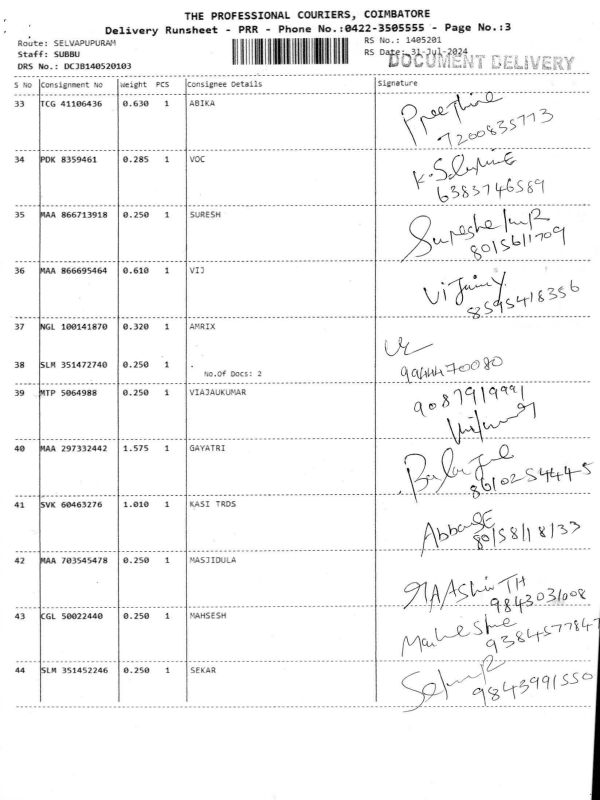 THE PROFESSIONAL COURIERS, COIMBATORE
Delivery Runsheet - PRR - Phone No.:0422-3505555 - Page No.:3
Route: SELVAPUPURAM
Staff: SUBBU
DRS No.: DCJB140520103
RS No.: 1405201
RS Date: 31-Jul-2024
DOCUMENT DELIVERY
S No Consignment No Weight PCS Consignee Details Signature
33 TCG 41106436 0.630 1 ABIKA
7200835773
34 PDK 8359461 0.285 1 VOC
6383746589
35 MAA 866713918 0.250 1 SURESH
8015611709
36 MAA 866695464 0.610 1 VIJ
8595418356
37 NGL 100141870 0.320 1 AMRIX
38 SLM 351472740 0.250 1 .
No.Of Docs: 2
9944470080
39 MTP 5064988 0.250 1 VIAJAUKUMAR
9087919991
40 MAA 297332442 1.575 1 GAYATRI
8610254445
41 SVK 60463276 1.010 1 KASI TRDS
8015818133
42 MAA 703545478 0.250 1 MASJIDULA
9843031008
43 CGL 50022440 0.250 1 MAHSESH
9384577847
44 SLM 351452246 0.250 1 SEKAR
9843991550